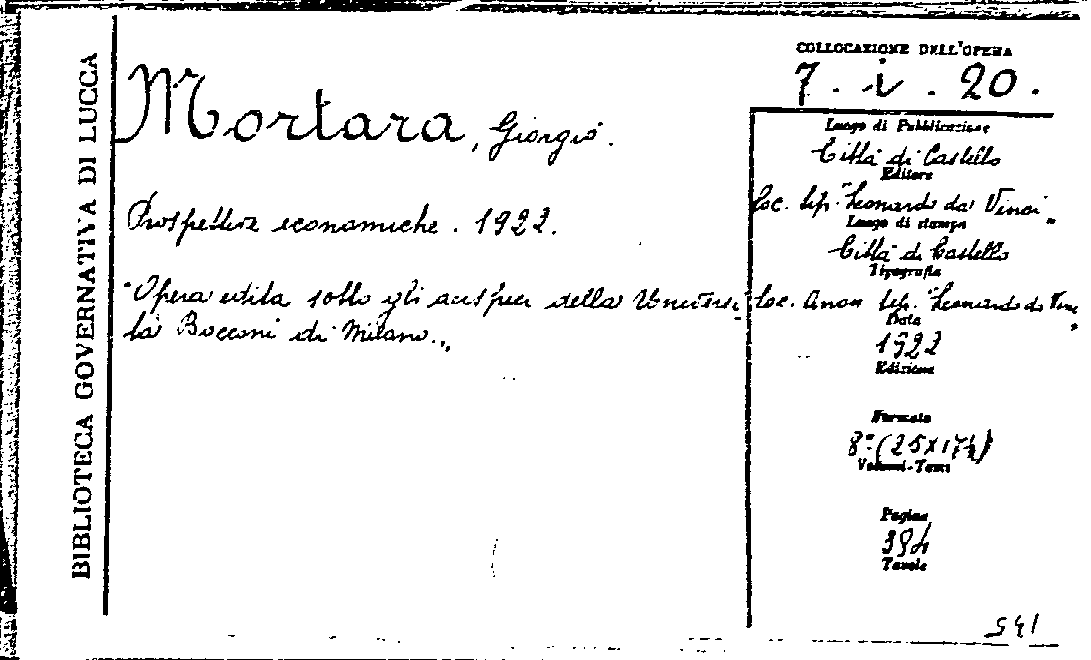 BIBLIOTECA GOVERNATIVA DI LUCCA
COLLOCAZIONE DELL'OPERA
7. i. 20.
Mortara, Giorgio.
Prospettive economiche. 1922.
"Opera edita sotto gli auspici della Universi-
tà Bocconi di Milano.„
Luogo di Pubblicazione
Città di Castello
Editore
Soc. tip. "Leonardo da Vinci„
Luogo di stampa
Città di Castello
Tipografia
Soc. Anon tip. "Leonardo da Vinci„
Data
1922
Edizione
Formato
8° (25x17½)
Volumi-Tomi
Pagine
394
Tavole